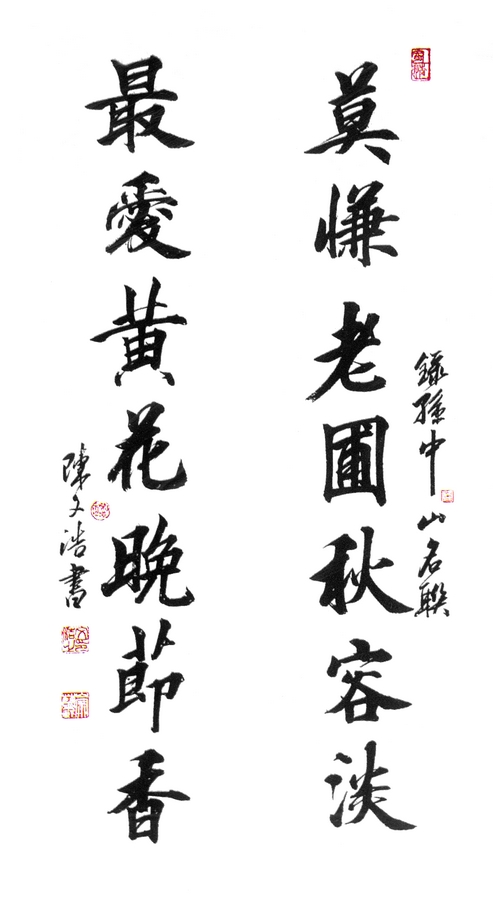 錄孫中山名聯
莫慊老圃秋容淡
最愛黃花晚節香
陳文浩書